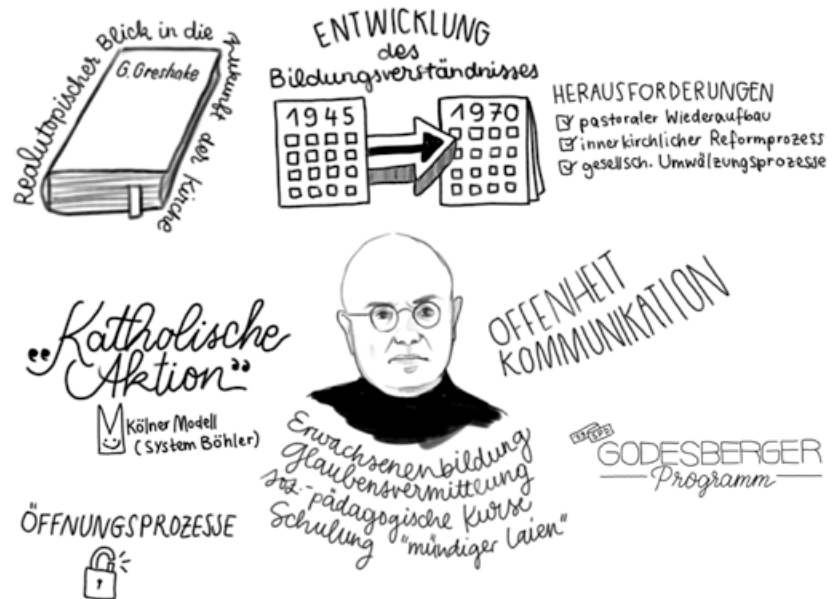 Realutopischer Blick in die Zukunft der Kirche
G. Greshake
ENTWICKLUNG
des
Bildungsverständnisses
1945
1970
HERAUSFORDERUNGEN
pastoraler Wiederaufbau
innerkirchlicher Reformprozess
gesellsch. Umwälzungsprozesse
„Katholische
Aktion“
Kölner Modell
(System Böhler)
OFFENHEIT
KOMMUNIKATION
Erwachsenenbildung
Glaubensvermittlung
soz.-pädagogische Kurse
Schulung "mündiger Laien"
SPD
GODESBERGER
Programm
ÖFFNUNGSPROZESSE